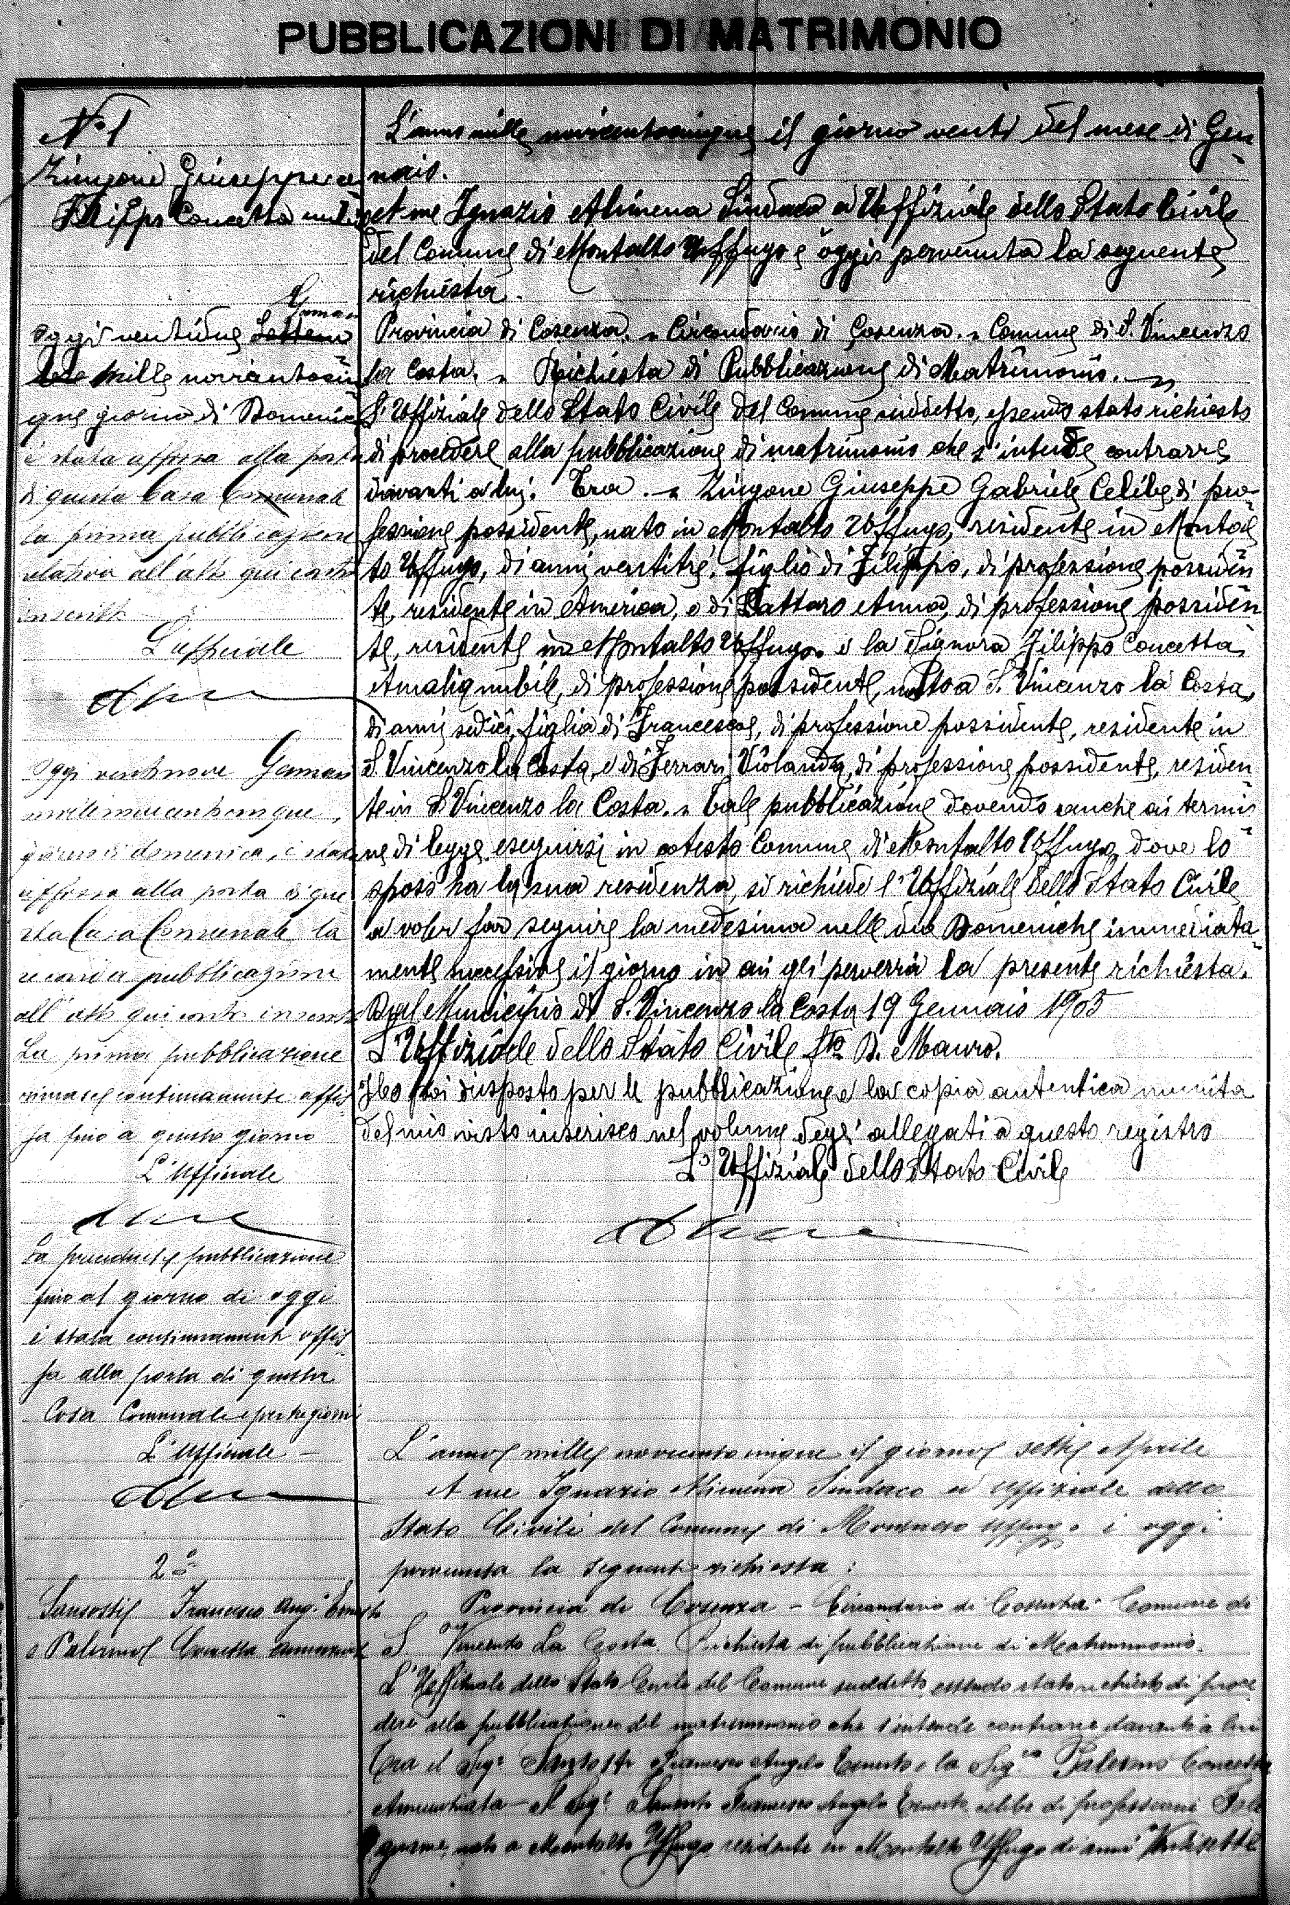 PUBBLICAZIONI DI MATRIMONIO
N. 1
Zingone Giuseppe e
Filippo Concetta
Gennaio
Oggi ventidue
mille novecentocin
que giorno di Domenica
è stata affissa alla porta
di questa Casa Comunale
la prima pubblicazione
relativa all'atto qui contro
inscritto
L'ufficiale
Oggi ventinove Gennaio
millenovecentocinque,
giorno di domenica, è stata
affissa alla porta di que
sta Casa Comunale la
seconda pubblicazione
all'atto qui contro inscritto
La prima pubblicazione
rimase continuamente affis
sa fino a questo giorno
L'Ufficiale
La precedente pubblicazione
fino al giorno di oggi
è stata continuamente affis
sa alla porta di questa
Casa Comunale per tre giorni
L'Ufficiale
2°
Francesco Ang. Ernesto
e Palermo Concetta
L'anno mille novecentocinque il giorno venti del mese di Gen
naio.
A me Ignazio Alimena Sindaco ed Uffiziale dello Stato Civile
del Comune di Montalto Uffugo è oggi pervenuta la seguente
richiesta.
Provincia di Cosenza. Circondario di Cosenza. Comune di S. Vincenzo
la Costa. Richiesta di Pubblicazione di Matrimonio.
L'Uffiziale dello Stato Civile del Comune suddetto, essendo stato richiesto
di procedere alla pubblicazione di matrimonio che s'intende contrarre
davanti a lui. Tra Zingone Giuseppe Gabriele Celibe, di pro
fessione possidente, nato in Montalto Uffugo, residente in Montal
to Uffugo, di anni ventitré, figlio di Filippo, di professione possiden
te, residente in America, e di Lattaro Anna, di professione possiden
te, residente in Montalto Uffugo e la Signora Filippo Concetta
Amalia nubile, di professione possidente, nata a S. Vincenzo la Costa,
di anni sedici, figlia di Francesco, di professione possidente, residente in
S. Vincenzo la Costa, e di Ferrari Violanda, di professione possidente, residen
te in S. Vincenzo la Costa. Tale pubblicazione dovendo anche ai termi
ne di legge eseguirsi in cotesto Comune di Montalto Uffugo, dove lo
sposo ha la sua residenza, si richiede l'Uffiziale dello Stato Civile
a voler far seguire la medesima nelle due Domeniche immediata
mente successive il giorno in cui gli perverrà la presente richiesta.
Dal Municipio di S. Vincenzo la Costa 19 Gennaio 1905
L'Uffiziale dello Stato Civile fto B. Mauro.
Ho poi disposto per le pubblicazione e la copia autentica munita
del mio visto inserisco nel volume degli allegati a questo registro
L'Uffiziale dello Stato Civile
L'anno mille novecentocinque il giorno sette Aprile
A me Ignazio Alimena Sindaco ed Uffiziale dello
Stato Civile del Comune di Montalto Uffugo è oggi
pervenuta la seguente richiesta:
Provincia di Cosenza - Circondario di Cosenza - Comune di
S. Vincenzo La Costa. Richiesta di pubblicazione di Matrimonio.
L'Uffiziale dello Stato Civile del Comune suddetto essendo stato richiesto di proce
dere alla pubblicazione del matrimonio che s'intende contrarre davanti a lui
Tra il Sig. Francesco Angelo Ernesto e la Sig.na Palermo Concetta
Annunziata - Il Sig. Francesco Angelo Ernesto celibe di professione Fale
gname, nato a Montalto Uffugo residente in Montalto Uffugo di anni Ventisette